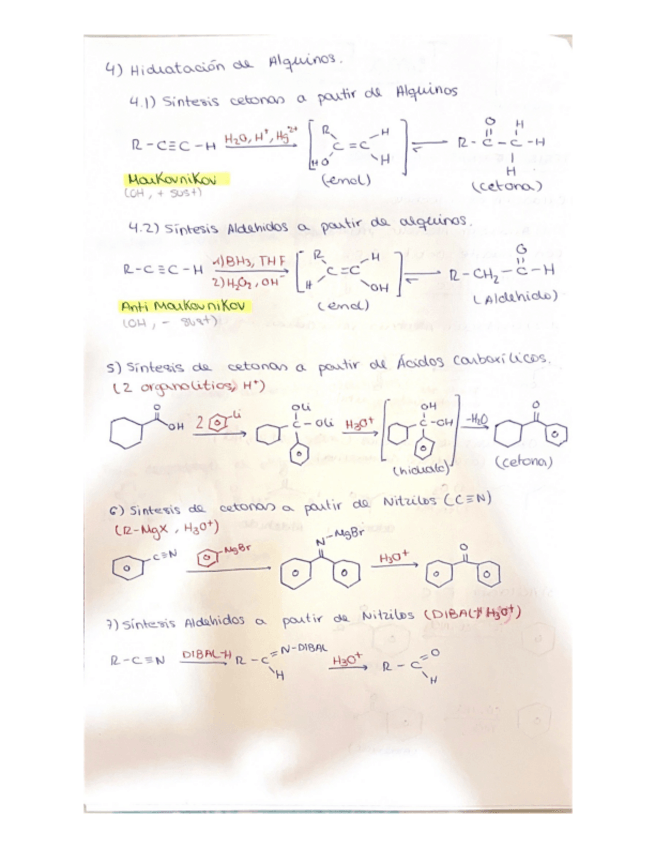 4) Hidratación de Alquinos.
4.1) Síntesis cetonas a partir de Alquinos
R-C≡C-H H₂O, H⁺, Hg²⁺ [R HO C=C H H] ⇌ R-C-C-H O H H
Markovnikov (enol) (cetona)
(OH, + sust)
4.2) Síntesis Aldehidos a partir de alquinos.
R-C≡C-H 1) BH₃, THF 2) H₂O₂, OH⁻ [R H C=C H OH] ⇌ R-CH₂-C-H O
Anti Markovnikov (enol) (Aldehido)
(OH, - sust)
5) Síntesis de cetonas a partir de Ácidos Carboxílicos.
(2 organolitios, H⁺)
O OH 2 Li OLi C-OLi H₃O⁺ [OH C-OH] -H₂O O
(hidrato) (cetona)
6) Síntesis de cetonas a partir de Nitrilos (C≡N)
(R-MgX, H₃O⁺)
C≡N MgBr N-MgBr H₃O⁺ O
7) Síntesis Aldehidos a partir de Nitrilos (DIBAL-H, H₃O⁺)
R-C≡N DIBAL-H R-C=N-DIBAL H H₃O⁺ R-C=O H